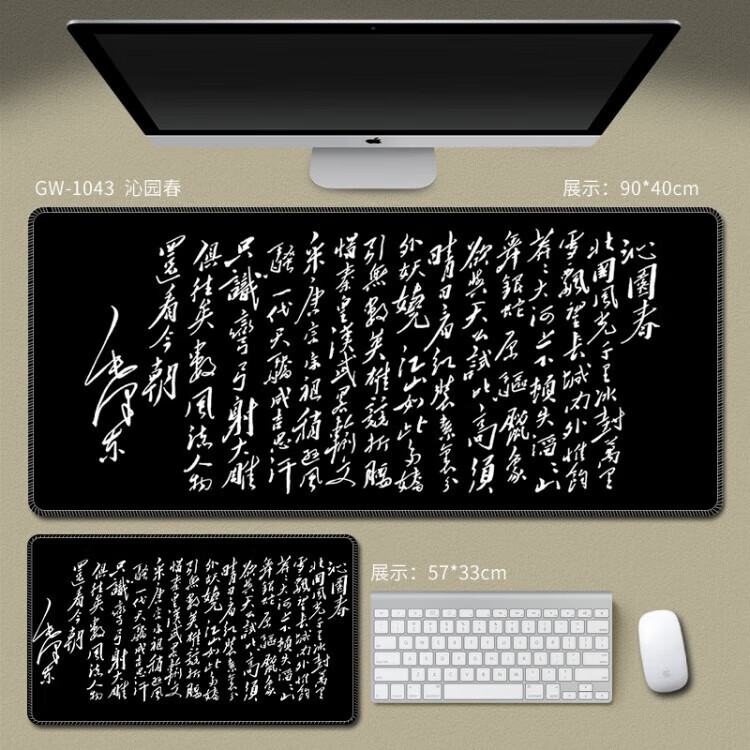 GW-1043 沁园春
展示：90*40cm
沁園春
北國風光千里冰封萬里
雪飄望長城內外惟餘
莽々大河上下頓失滔々山
舞銀蛇原驅臘象
欲與天公試比高須
晴日看紅裝素裹分
外妖嬈江山如此多嬌
引無數英雄競折腰
惜秦皇漢武略輸文
采唐宗宋祖稍遜風
騷一代天驕成吉思汗
只識彎弓射大雕
俱往矣數風流人物
還看今朝
毛澤東
展示：57*33cm
沁園春
北國風光千里冰封萬里
雪飄望長城內外惟餘
莽々大河上下頓失滔々山
舞銀蛇原驅臘象
欲與天公試比高須
晴日看紅裝素裹分
外妖嬈江山如此多嬌
引無數英雄競折腰
惜秦皇漢武略輸文
采唐宗宋祖稍遜風
騷一代天驕成吉思汗
只識彎弓射大雕
俱往矣數風流人物
還看今朝
毛澤東